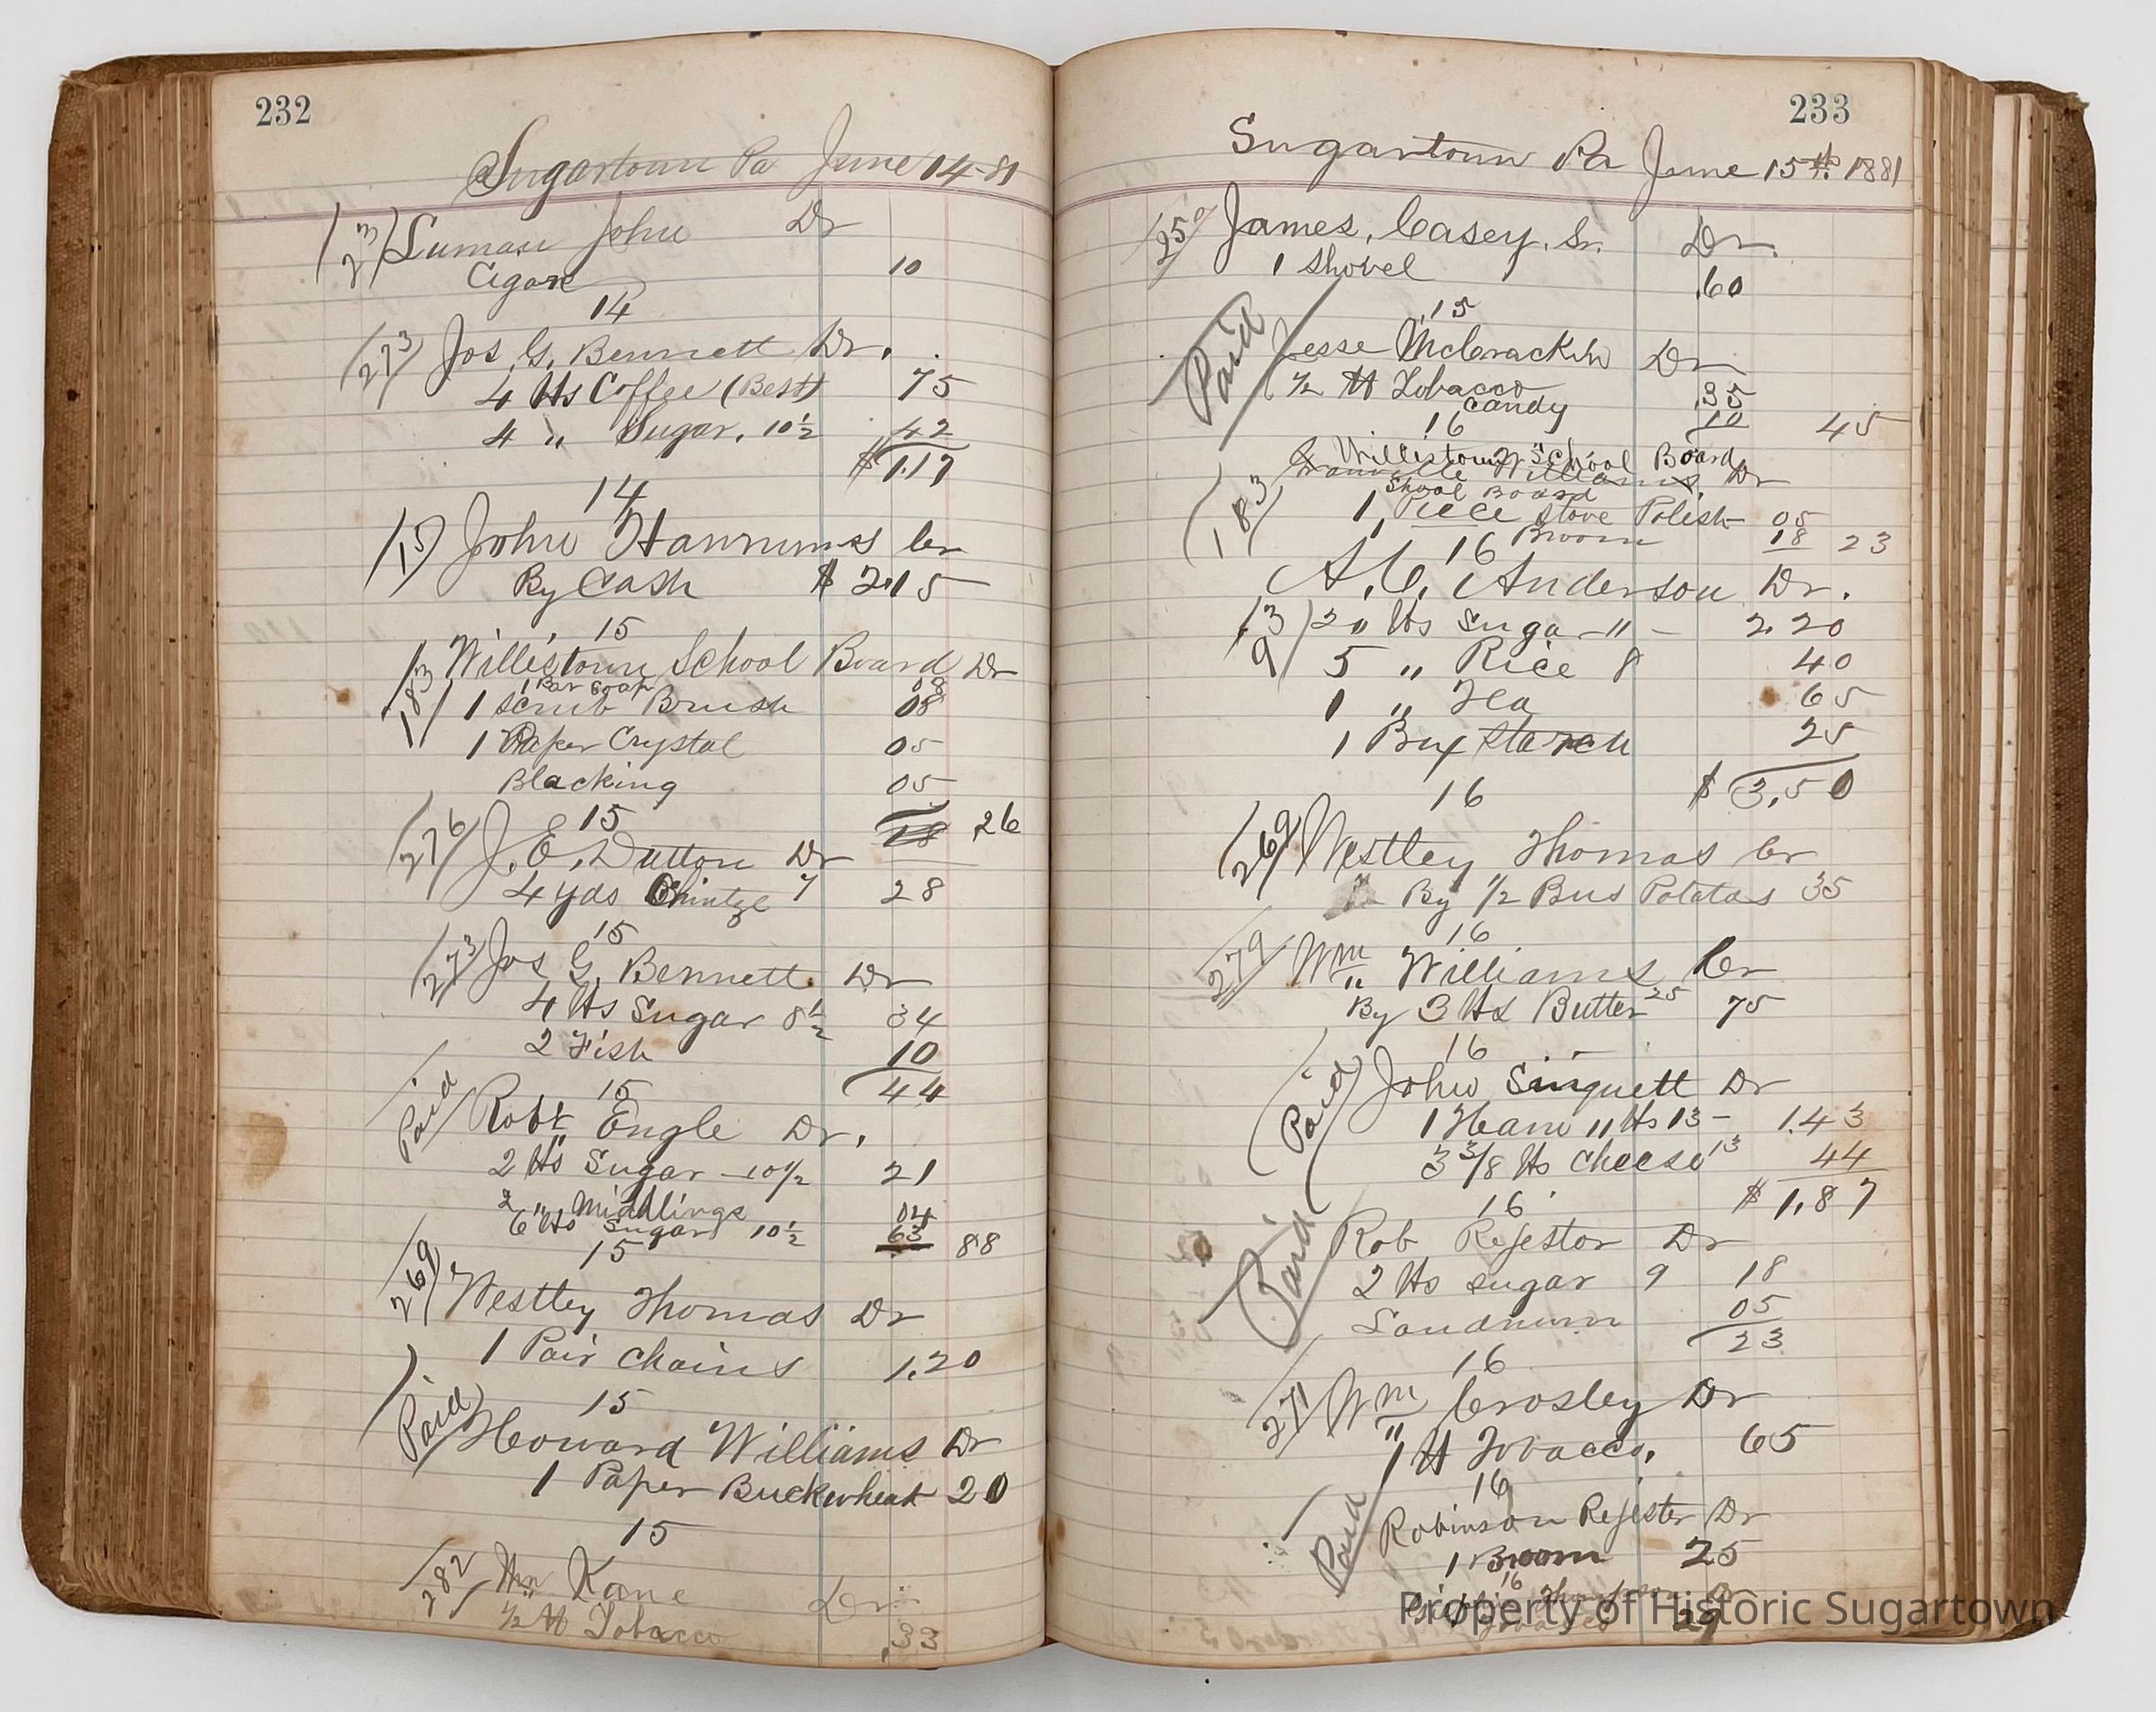 232
Sugartown Pa June 14-81
(273) John Dr
Cigars 10
14
(273) Jos. G. Bennett Dr.
4 lbs Coffee (Best) 75
4 " Sugar. 10½ 42
$1.17
14
(15) John Hannums Cr
By Cash $2.15
15
(183) Willistown School Board Dr
1 Bar Soap 08
1 Scrub Brush 08
1 Paper Crystal 05
Blacking 05
18 26
15
(276) J. E. Dutton Dr
4 yds Chintze 7 28
15
(273) Jos G. Bennett Dr
4 lbs Sugar 8½ 34
2 Fish 10
44
15
Paid Robt Engle Dr.
2 lbs Sugar - 10½ 21
2 " Middlings 04
6 lbs Sugar 10½ 63 88
15
269 Westley Thomas Dr
1 Pair Chains 1.20
15
Paid Howard Williams Dr
1 Paper Buckwheat 20
15
282 Wm Kane Dr
½ lb Tobacco .33
233
Sugartown Pa June 15th 1881
250 James, Casey, Sr. Dr.
1 Shovel .60
15
Paid Jesse McCrackin Dr
½ lb Tobacco .35
Candy 10 45
16
Willistown School Board
Williams Dr
Shool Board
(183) 1 Piece Stove Polish 05
Broom 18 23
16
A. C. Anderson Dr.
(139) 20 lbs Sugar 11 - 2.20
5 " Rice 8 40
1 " Tea 65
1 Box Starch 25
$3.50
16
(269) Westley Thomas Cr
By ½ Bus Potatas 35
16
279 Wm Williams Cr
By 3 lbs Butter 25 75
16
Paid John Sinquett Dr
1 Ham 11 lbs 13 - 1.43
3 3/8 lbs Cheese 13 44
$1.87
16
Paid Rob Rejestor Dr
2 lbs sugar 9 18
Laudnum 05
23
16
271 Wm Crosley Dr
1 lb Tobacco. 65
16
Paid Robinson Rejester Dr
1 Broom 25
16
Thompson Dr
Tobacco 29
Property of Historic Sugartown